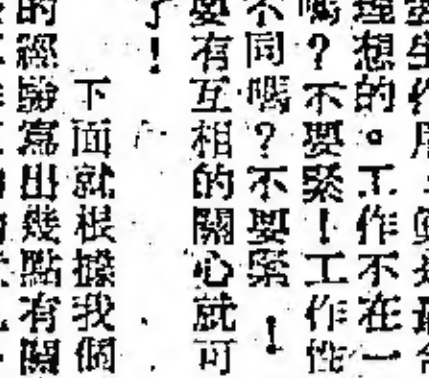 理想的。工作不在一
嗎？不要緊！工作性
不同嗎？不要緊！
要有互相的關心就可
了！
下面就根據我個
的經驗寫出幾點有關